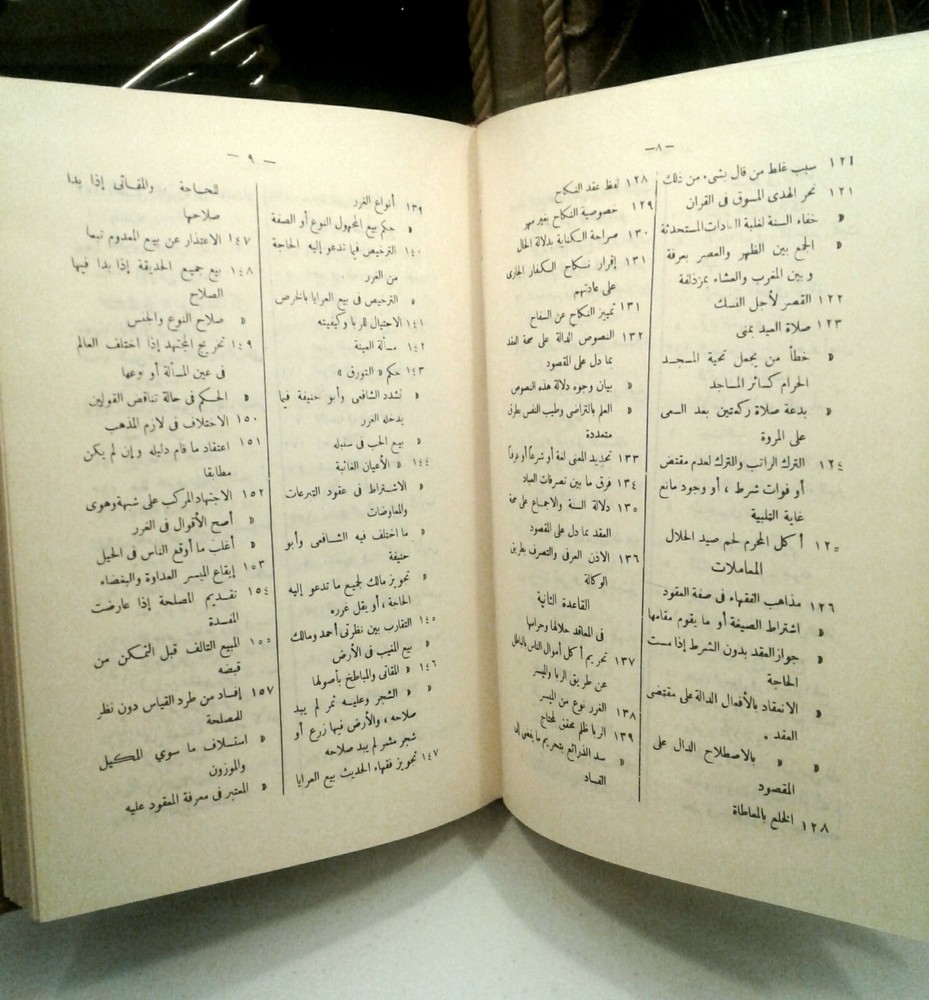 — ٨ —
١٢١ سبب غلط من قال بشىء من ذلك
١٢١ نحر الهدى المسوق فى القران
» خفاء السنة لغلبة العادات المستحدثة
» الجمع بين الظهر والعصر بعرفة
وبين المغرب والعشاء بمزدلفة
١٢٢ القصر لأجل النسك
١٢٣ صلاة العيد بمنى
» خطأ من يجعل تحية المسجد
الحرام كسائر المساجد
» بدعة صلاة ركعتين بعد السعى
على المروة
١٢٤ الترك الراتب والترك لعدم مقتض
أو فوات شرط ، أو وجود مانع
غاية التلبية
١٢٥ أكل المحرم لحم صيد الحلال
المعاملات
١٢٦ مذاهب الفقهاء فى صفة العقود
» اشتراط الصيغة أو ما يقوم مقامها
» جواز العقد بدون الشرط إذا مست
الحاجة
» الانعقاد بالأفعال الدالة على مقتضى
العقد .
» » بالاصطلاح الدال على
المقصود
١٢٨ الخلع بالمعاطاة
١٢٨ لفظ عقد النكاح
١٢٩ خصوصية النكاح بغير مهر
١٣٠ صراحة الكناية بدلالة الحال
١٣١ إقرار نكاح الكفار الجارى
على عادتهم
١٣١ تمييز النكاح عن السفاح
١٣٢ النصوص الدالة على صحة العقد
بما دل على المقصود
» بيان وجوه دلالة هذه النصوص
» العلم بالتراضى وطيب النفس بطرق
متعددة
١٣٣ تحديد المعنى لغة أو شرعاً أو عرفاً
١٣٤ فرق ما بين تصرفات العباد
١٣٥ دلالة السنة والاجماع على صحة
العقد بما دل على المقصود
١٣٦ الاذن العرفى والتصرف بطريق
الوكالة
القاعدة الثانية
فى المعاقد حلالها وحرامها
١٣٧ تحريم أكل أموال الناس بالباطل
عن طريق الربا والميسر
١٣٨ الغرر نوع من الميسر
١٣٩ الربا ظلم محقق لمحتاج
» سد الذرائع بتحريم ما يفضى إلى
الفساد
— ٩ —
١٣٩ أنواع الغرر
» حكم بيع المجهول النوع أو الصفة
١٤٠ الترخيص فيما تدعو إليه الحاجة
من الغرر
» الترخيص فى بيع العرايا بالخرص
١٤١ الاحتيال للربا وكيفيته
١٤٢ مسألة العينة
١٤٣ حكم « التورق »
» تشدد الشافعى وأبو حنيفة فيما
يدخله الغرر
» بيع الحب فى سنبله
١٤٤ » الأعيان الغائبة
» الاشتراط فى عقود التبرعات
والمعاوضات
» ما اختلف فيه الشافعى وأبو
حنيفة
» تجويز مالك لجميع ما تدعو إليه
الحاجة ، أو يقل غرره
١٤٥ التقارب بين نظرتى أحمد ومالك
» بيع المغيب فى الأرض
١٤٦ » المقاثى والمباطخ بأصولها
» » الشجر وعليه ثمر لم يبد
صلاحه ، والأرض فيها زرع أو
شجر مثمر لم يبد صلاحه
١٤٧ تجويز فقهاء الحديث بيع العرايا
للحاجة . والمقاثى إذا بدا
صلاحها
١٤٧ الاعتذار عن بيع المعدوم تبعا
١٤٨ بيع جميع الحديقة إذا بدا فيها
الصلاح
» صلاح النوع والجنس
١٤٩ تخريج المجتهد إذا اختلف العالم
فى عين المسألة أو نوعها
» الحكم فى حالة تناقض القولين
١٥٠ الاختلاف فى لازم المذهب
١٥١ اعتقاد ما قام دليله وإن لم يكن
مطابقا
١٥٢ الاجتهاد المركب على شبهة وهوى
» أصح الأقوال فى الغرر
» أغلب ما أوقع الناس فى الحيل
١٥٣ إيقاع الميسر العداوة والبغضاء
١٥٤ تقديم المصلحة إذا عارضت
المفسدة
١٥٥ المبيع التالف قبل التمكن من
قبضه
١٥٧ إفساد من طرد القياس دون نظر
للمصلحة
» استسلاف ما سوي المكيل
والموزون
» المعتبر فى معرفة المعقود عليه